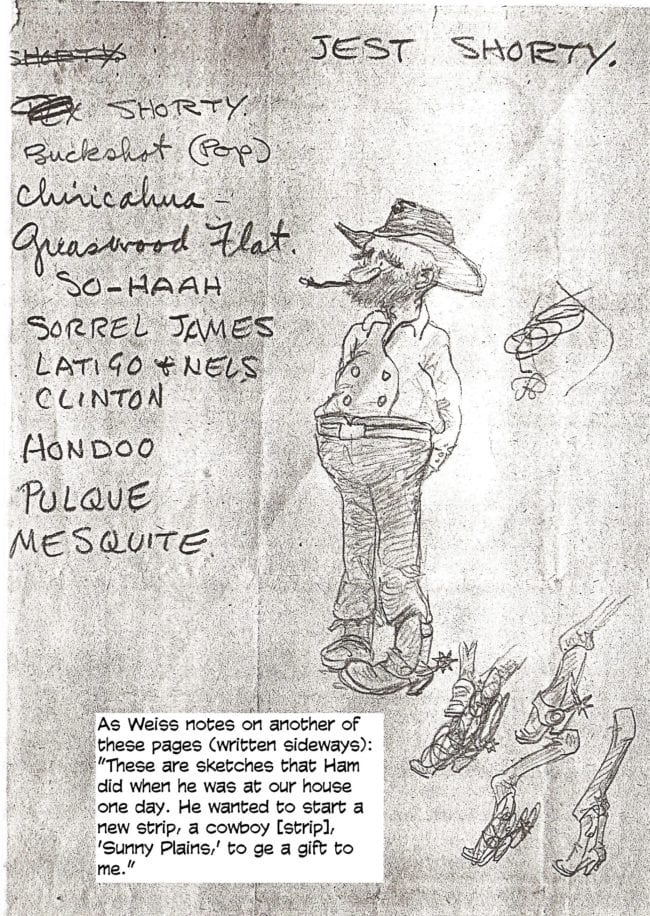 SHORTY.
JEST SHORTY.
TEX SHORTY.
Buckshot (Pop)
Chiricahua -
Greaswood Flat.
SO-HAAH
SORREL JAMES
LATIGO + NELS
CLINTON
HONDOO
PULQUE
MESQUITE.
As Weiss notes on another of
these pages (written sideways):
"These are sketches that Ham
did when he was at our house
one day. He wanted to start a
new strip, a cowboy [strip],
'Sunny Plains,' to ge a gift to
me."